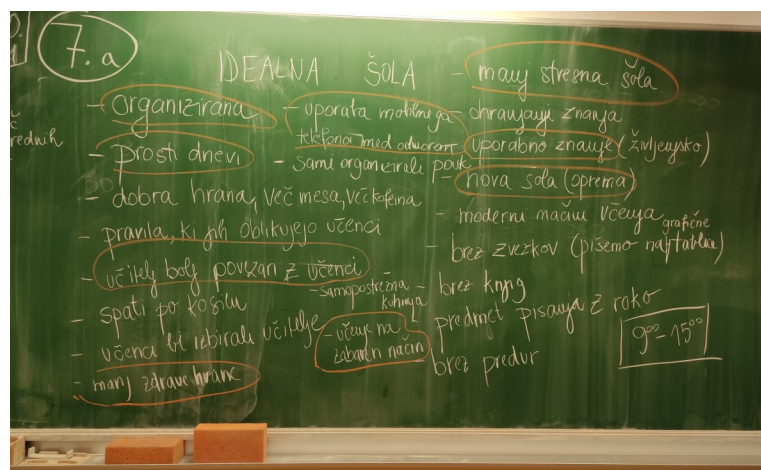 7. a
rednih
IDEALNA ŠOLA
- organizirana
- prosti dnevi
- dobra hrana, več mesa, več kofeina
- pravila, ki jih oblikujejo učenci
- učitelj bolj povezan z učenci
- spati po kosilu
- učenci bi izbirali učitelje
- manj zdrave hrane
- uporaba mobilnega
telefona med odmorom
- sami organizirali pouk
- samopostrežna
kuhinja
- učenje na
zabaven način
- manj stresna šola
- ohranjanje znanja
- uporabno znanje (življenjsko)
- nova šola (oprema)
- moderni načini učenja
- brez zvezkov (pišemo na grafične tablice)
- brez knjig
predmet pisanja z roko
- brez predur
9⁰⁰ - 15⁰⁰